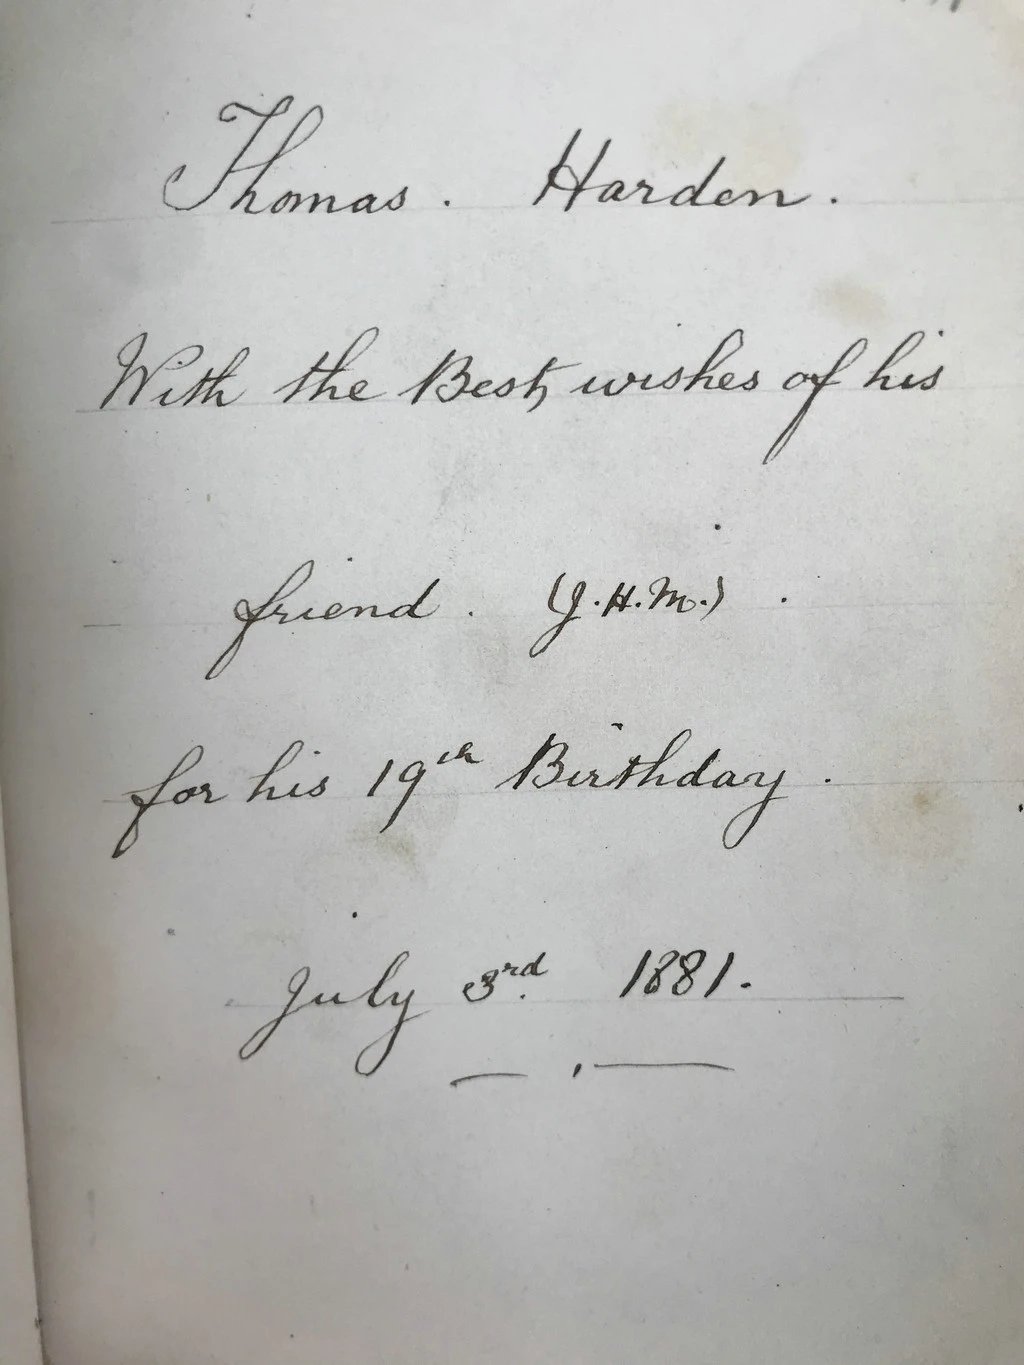 Thomas . Harden .
With the Best, wishes of his
friend . (J.H.M.) .
for his 19th Birthday .
July 3rd. 1881.